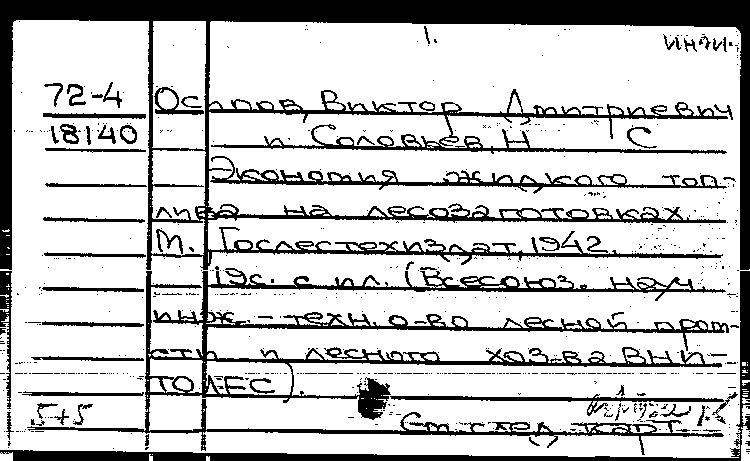 1.
72-4
18140
Осипов, Виктор Дмитриевич
и Соловьев, Н С
Экономия жидкого топ-
лива на лесозаготовках.
М., Гослестехиздат, 1942.
19с. с ил. (Всесоюз. науч.
инж.-техн. о-во лесной пром-
сти и лесного хоз-ва ВНИ-
ТОЛЕС).
5+5
См. след. карт.